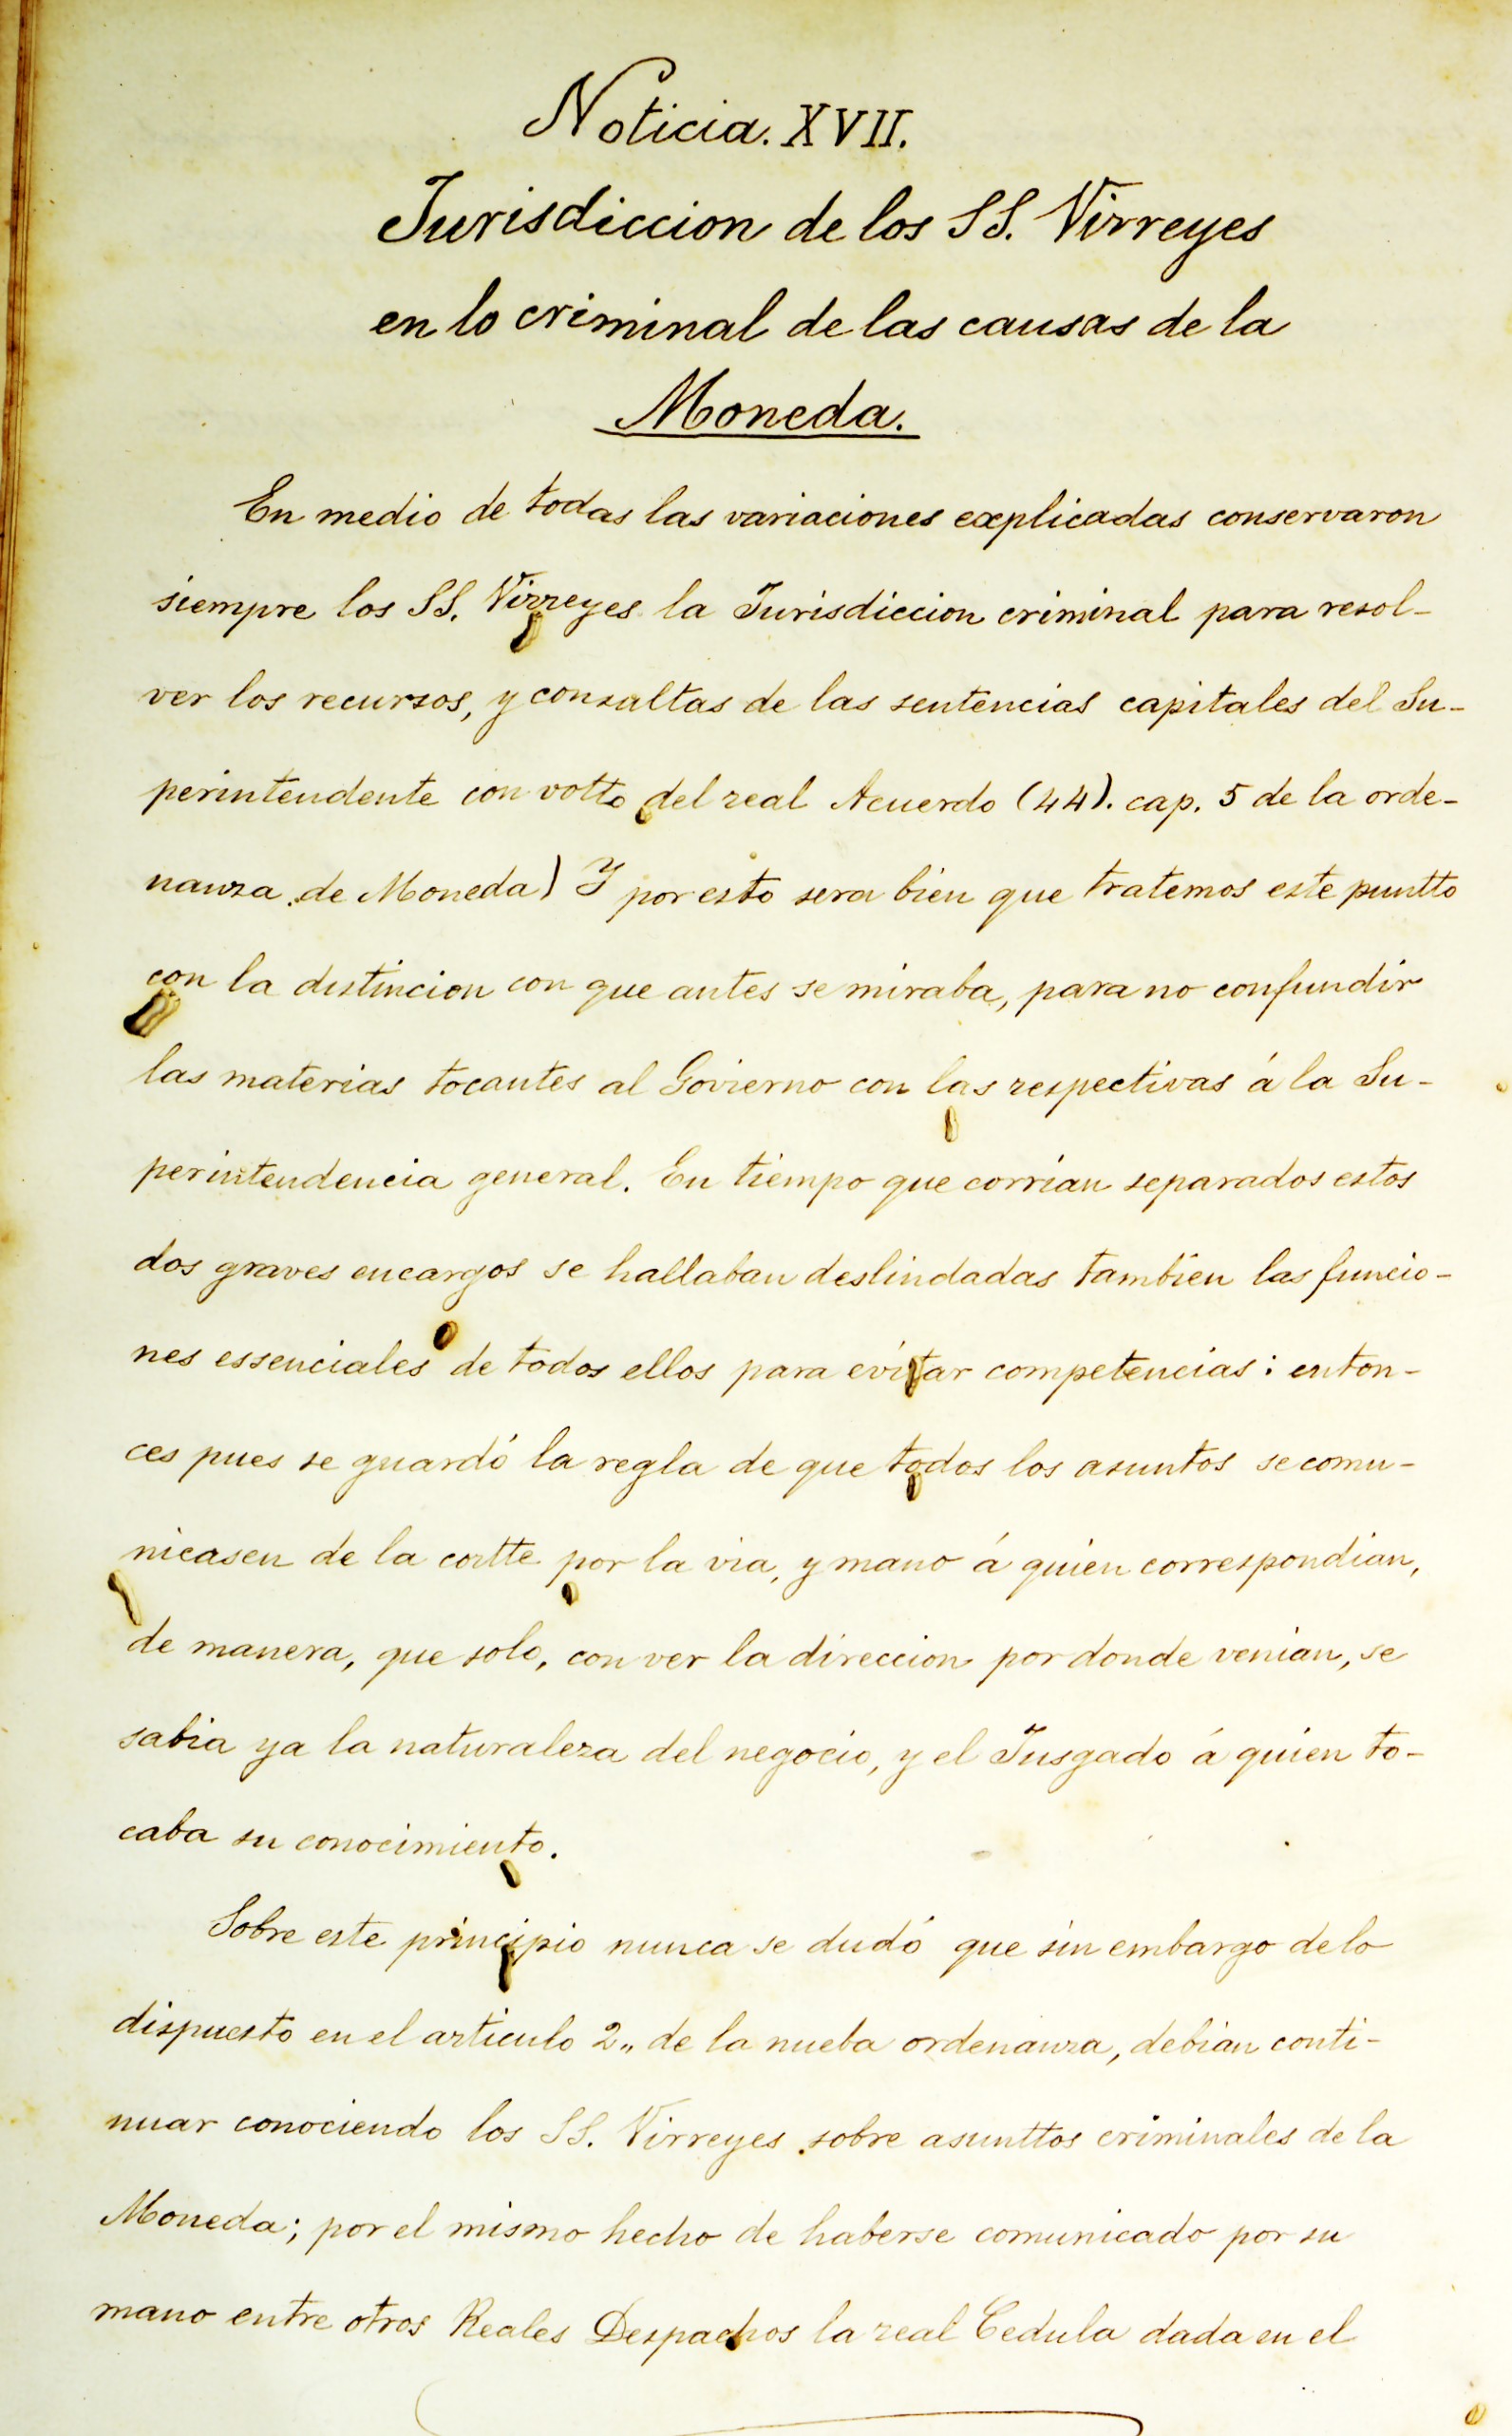 Noticia. XVII.
Jurisdiccion de los SS. Virreyes
en lo criminal de las causas de la
Moneda.
En medio de todas las variaciones explicadas conservaron
siempre los SS. Virreyes la Jurisdiccion criminal para resol-
ver los recursos, y consaltas de las sentencias capitales del Su-
perintendente con votto del real Acuerdo (44). cap. 5 de la orde-
nanza de Moneda) Y por esto sera bien que tratemos este puntto
con la distincion con que antes se miraba, para no confundir
las materias tocantes al Govierno con las respectivas á la Su-
perintendencia general. En tiempo que corrian separados estos
dos graves encargos se hallaban deslindadas tambien las funcio-
nes essenciales de todos ellos para evitar competencias: enton-
ces pues se guardó la regla de que todos los asuntos se comu-
nicasen de la cortte por la via, y mano á quien correspondian,
de manera, que solo, con ver la direccion por donde venian, se
sabia ya la naturaleza del negocio, y el Jusgado á quien to-
caba su conocimiento.
Sobre este principio nunca se dudó que sin embargo de lo
dispuesto en el articulo 2,, de la nueba ordenanza, debian conti-
nuar conociendo los SS. Virreyes sobre asunttos criminales de la
Moneda; por el mismo hecho de haberse comunicado por su
mano entre otros Reales Despachos la real Cedula dada en el